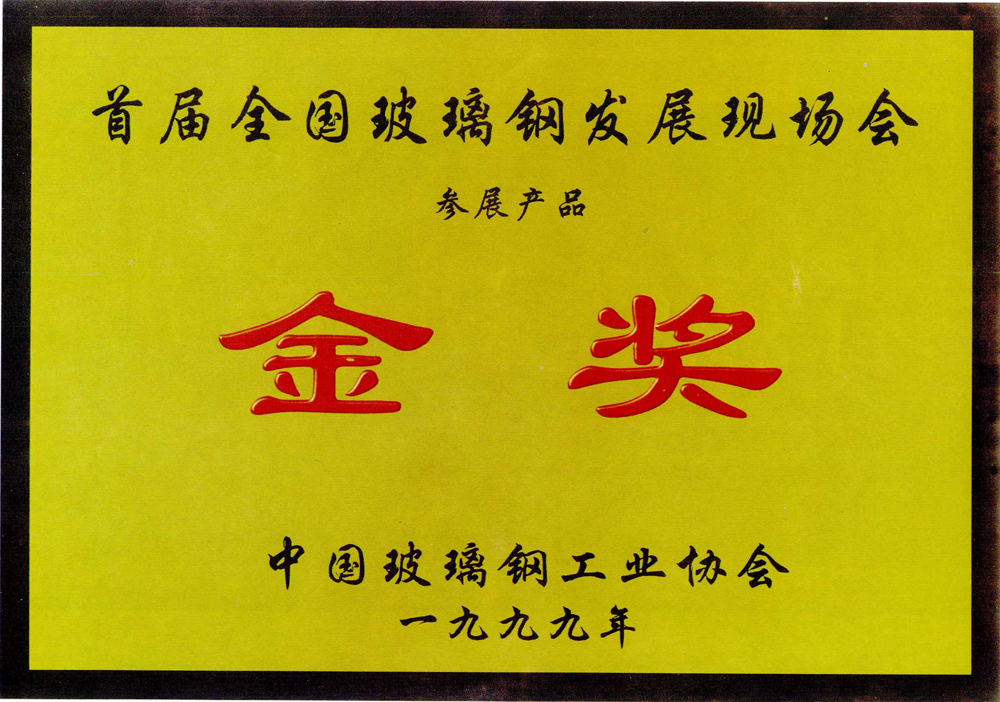 首届全国玻璃钢发展现场会
参展产品
金奖
中国玻璃钢工业协会
一九九九年